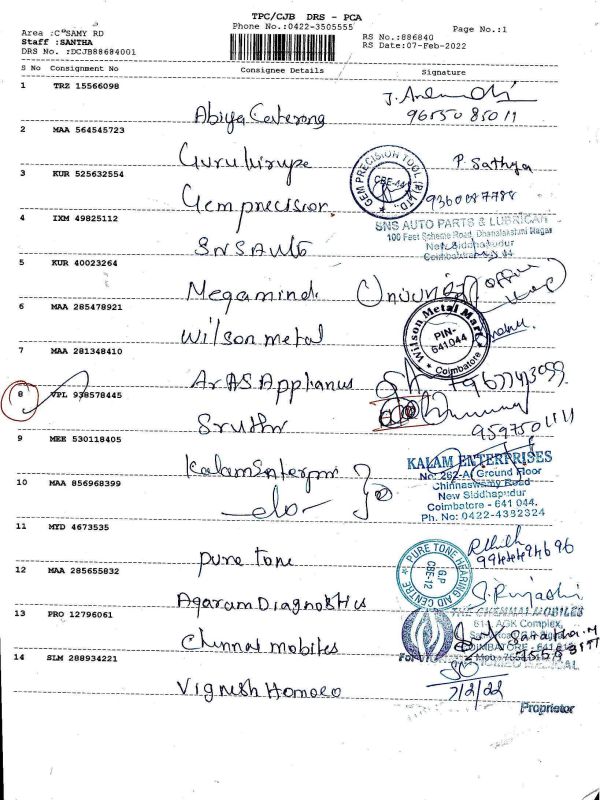 TPC/CJB DRS - PCA
Phone No.:0422-3505555
Page No.:1
Area :C SAMY RD
Staff :SANTHA
DRS No. :DCJB88684001
RS No.:886840
RS Date:07-Feb-2022
S No Consignment No Consignee Details Signature
1 TRZ 15566098
Abiya Catering
9655085011
2 MAA 564545723
Gurukirupa
P. Sathya
3 KUR 525632554
Gem precision
GEM PRECISION TOOL (P) LTD
CBE-44
9360047788
4 IXM 49825112
SNS Auto
SNS AUTO PARTS & LUBRICAN
100 Feet Scheme Road, Dhanalakshmi Nagar
New Siddhapudur
5 KUR 40023264
Megamind
6 MAA 285478921
Wilson metal
Wilson Metal Mart
PIN-
641044
Coimbatore
7 MAA 281348410
ArAS Applianus
8 VPL 938578445
Sruthi
9597501111
9 MEE 530118405
Kalam Enterpri
KALAM ENTERPRISES
No: 262-A, Ground Floor
Chinnaswamy Road
New Siddhapudur
Coimbatore - 641 044.
Ph. No: 0422-4382324
10 MAA 856968399
-do-
11 MYD 4673535
pure tone
PURE TONE HEARING AID CENTRE
G.P
CBE-12
12 MAA 285655832
Agaram Diagnostics
13 PRO 12796061
Chennai mobiles
THE CHENNAI MOBILES
611, AGK Complex,
COIMBATORE - 641
14 SLM 288934221
Vignesh Homoeo
7/2/22
Proprietor